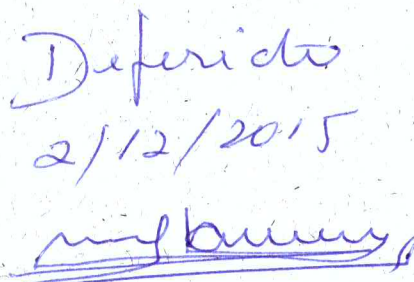 Deferido
2/12/2015